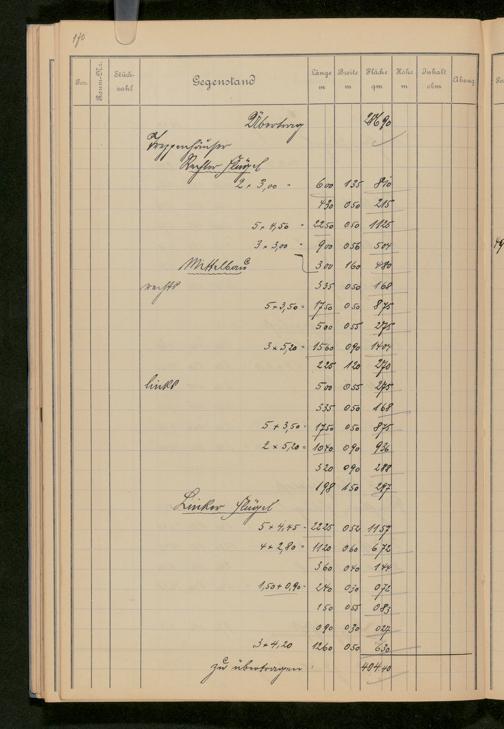 170
Pos. Raum-Nr. Stückzahl Gegenstand Länge m Breite m Fläche qm Höhe m Inhalt cbm Abzug
Übertrag 90
Treppenhäuser
Rechter Flügel
2 × 3,00 = 6 00 1 35 8 10
4 30 0 50 2 15
5 × 4,50 = 22 50 0 50 11 25
3 × 3,00 = 9 00 0 56 5 04
Mittelbau 3 00 1 60 4 80
rechts 3 35 0 50 1 68
5 × 3,50 = 17 50 0 50 8 75
5 00 0 55 2 75
3 × 5,20 = 15 60 0 90 14 04
2 25 1 20 2 70
links 5 00 0 55 2 75
3 35 0 50 1 68
5 × 3,50 = 17 50 0 50 8 75
2 × 5,20 = 10 40 0 90 9 36
3 20 0 90 2 88
1 98 1 50 2 97
Linker Flügel
5 × 4,45 = 22 25 0 52 11 57
4 × 2,80 = 11 20 0 60 6 72
3 60 0 40 1 44
1,50 + 0,90 = 2 40 0 30 0 72
1 50 0 55 0 83
0 90 0 30 0 27
3 × 4,20 12 60 0 50 6 30
zu übertragen 404 40